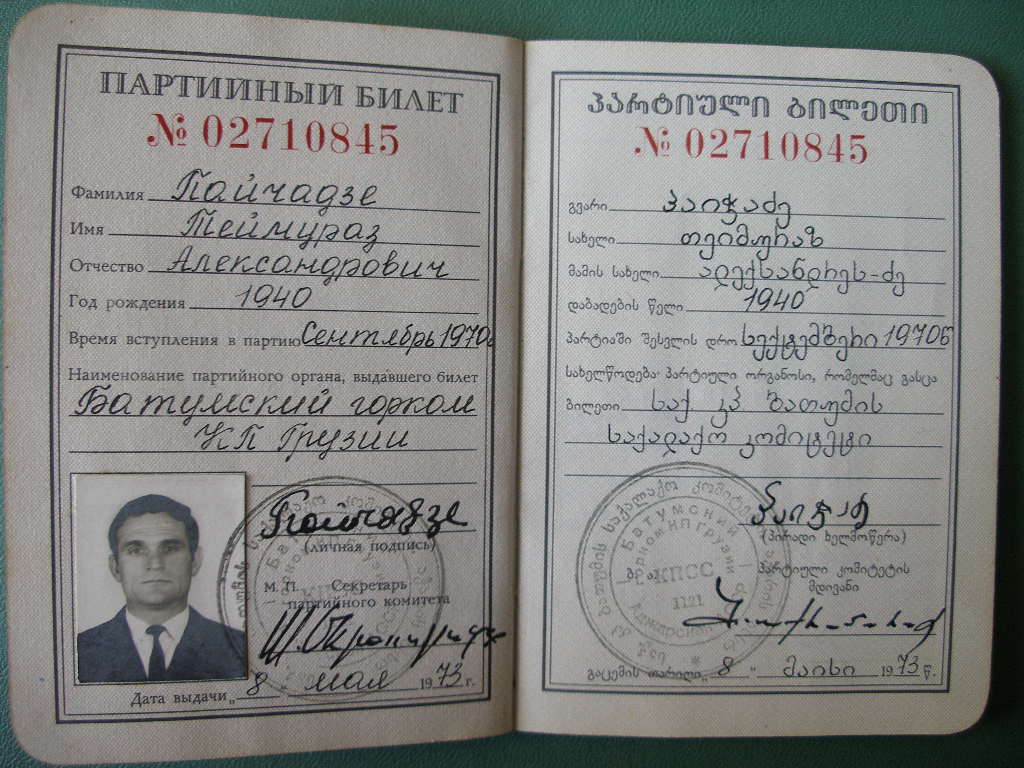 ПАРТИЙНЫЙ БИЛЕТ
№ 02710845
Фамилия Пайчадзе
Имя Теймураз
Отчество Александрович
Год рождения 1940
Время вступления в партию Сентябрь 1970г
Наименование партийного органа, выдавшего билет
Батумский горком
КП Грузии
Пайчадзе
(личная подпись)
М. П. Секретарь
партийного комитета
Дата выдачи „8“ мая 1973 г.
პარტიული ბილეთი
№ 02710845
გვარი პაიჭაძე
სახელი თეიმურაზ
მამის სახელი ალექსანდრეს-ძე
დაბადების წელი 1940
პარტიაში შესვლის დრო სექტემბერი 1970წ
სახელწოდება პარტიული ორგანოსი, რომელმაც გასცა
ბილეთი საქ. კპ ბათუმის
საქალაქო კომიტეტი
პაიჭაძე
(პირადი ხელმოწერა)
ბ. ა. პარტიული კომიტეტის
მდივანი
გაცემის თარიღი „8“ მაისი 1973 წ.
ბათუმის საქალაქო კომიტეტი
Батумский
горком КП Грузии
КПСС
1121